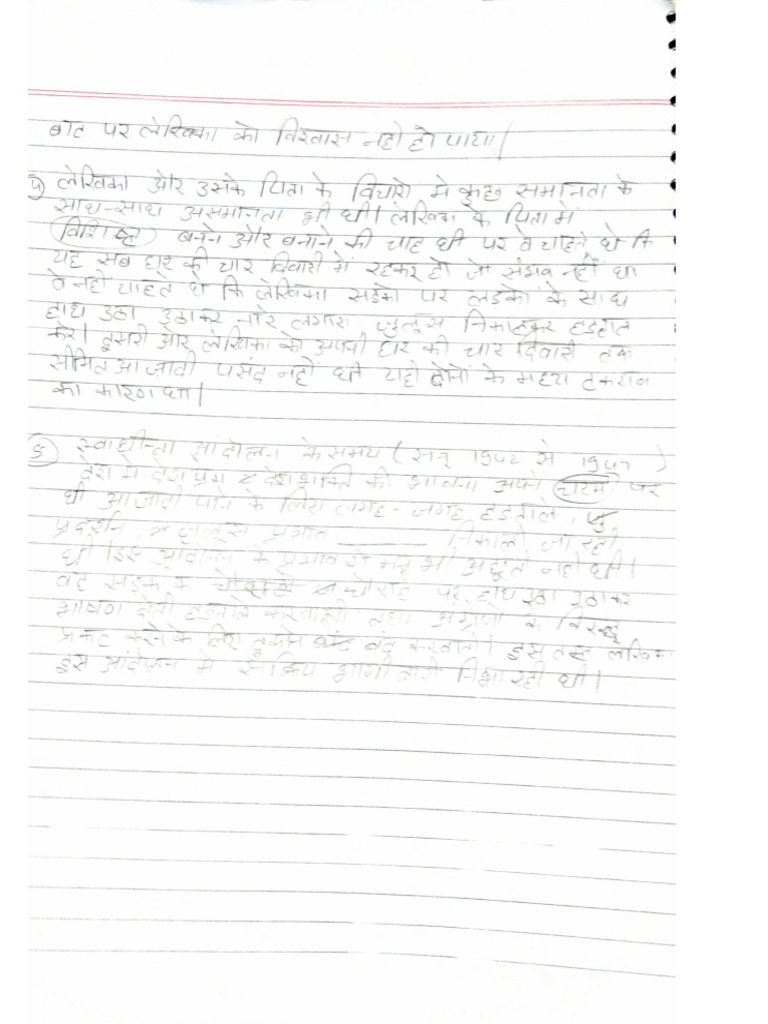 बात पर लेखिका को विश्वास नही हो पाया|
4) लेखिका और उसके पिता के विचारो मे कुछ समानता के
साथ-साथ असमानता भी थी। लेखिका के पिता में
विशिष्ट बनने और बनाने की चाह थी पर वे चाहते थे कि
यह सब घर की चार दिवारी में रहकर हो जो संभव नहीं था
वे नही चाहते थे कि लेखिका सडको पर लडकों के साथ
हाथ उठा उठाकर नारे लगाए जुलूस निकालकर हडताल
करे। दूसरी ओर लेखिका को अपनी घर की चार दिवारी तक
सीमित आजादी पसंद नहीं थी यही दोनों के मध्य टकराव
का कारण था|
5 स्वाधीनता आंदोलन के समय (सन् 1942 से 1947)
देश में देशभक्ति की भावना अपने चरम पर
थी आजादी पाने के लिए जगह-जगह हडताले,
प्रदर्शन, जुलूस प्रभात ______ निकाली जा रही
थी। इस आंदोलन के प्रभाव से मन्नू भी अछूती नही थी।
वह सडक के चौराहे पर हाथ उठा उठाकर
भाषण देती हडताले करवाती तथा अंग्रेजो के विरुद्ध
प्रकट करने के लिए दुकाने बंद करवाती। इस तरह लेखिका
इस आंदोलन मे सक्रिय भागीदारी निभा रही थी।